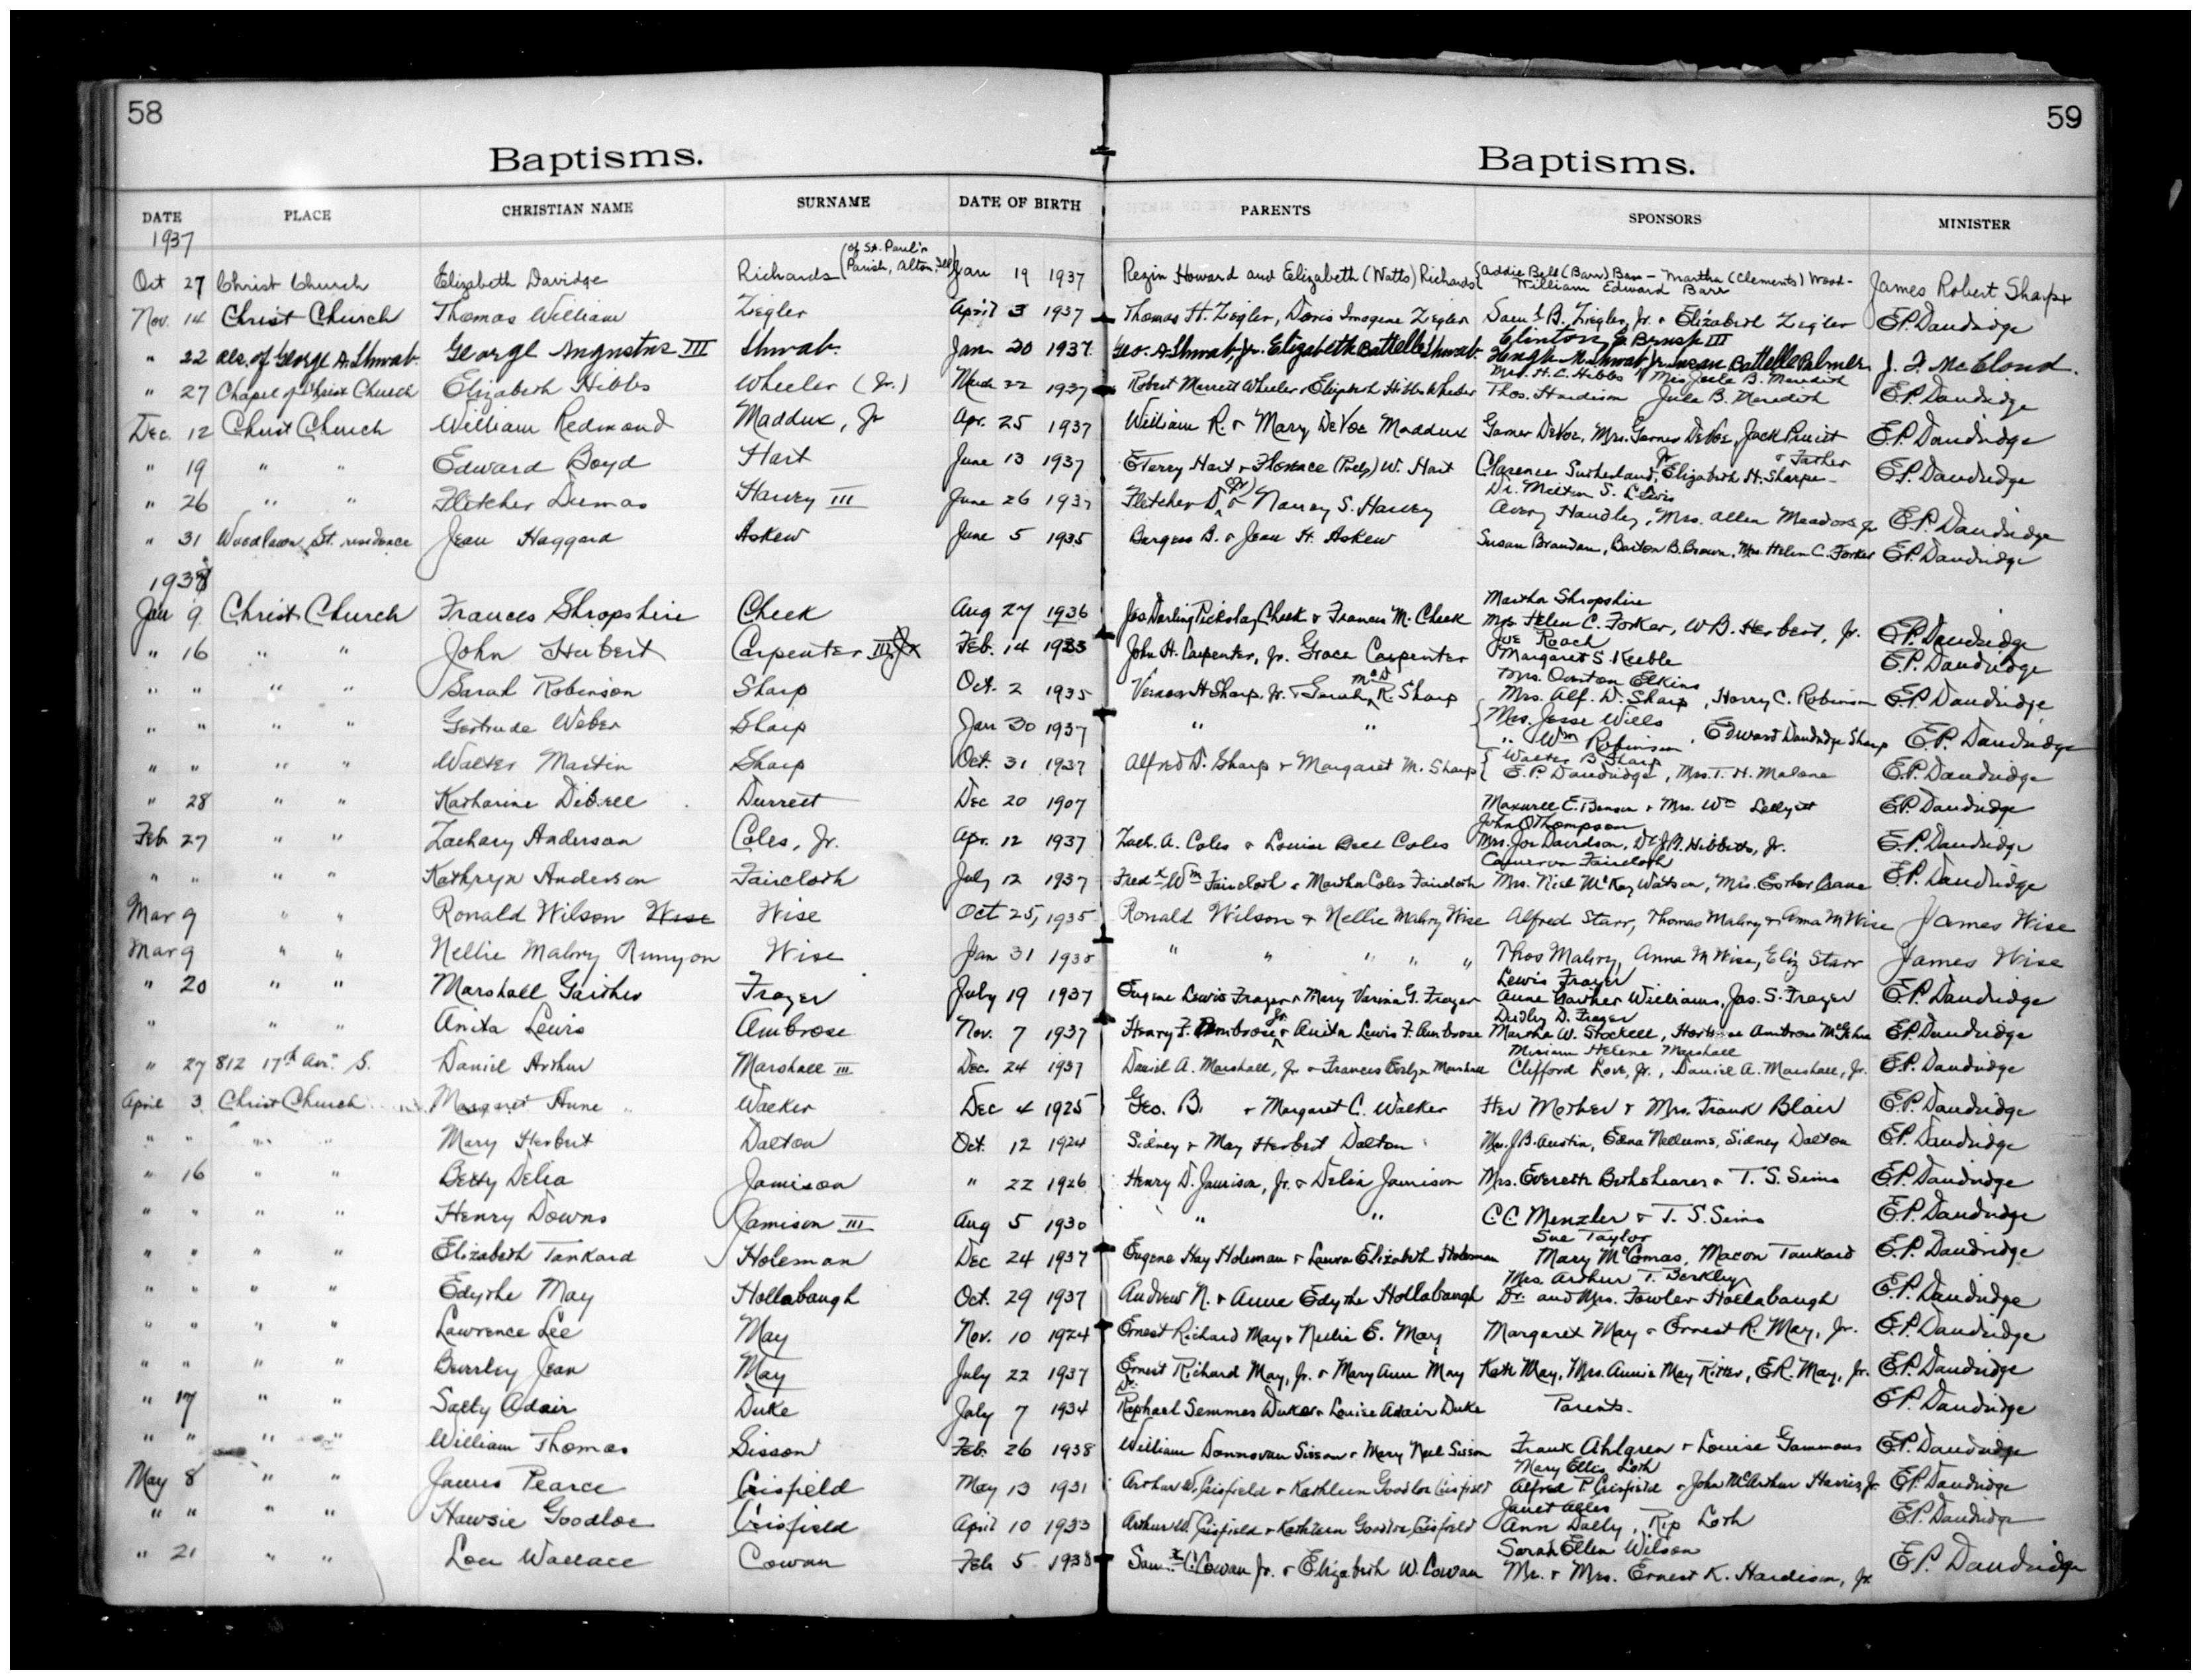 58
59
Baptisms.
Baptisms.
DATE PLACE CHRISTIAN NAME SURNAME DATE OF BIRTH PARENTS SPONSORS MINISTER
1937
Oct 27 Christ Church Elizabeth Davidge Richards (of St. Paul's Parish, Alton, Ill) Jan 19 1937 Rezin Howard and Elizabeth (Watts) Richards { Addie Bell (Barr) Barr - Martha (Clements) Wood - William Edward Barr James Robert Sharp
Nov. 14 Christ Church Thomas William Ziegler April 3 1937 Thomas H. Ziegler, Doris Imogene Ziegler Saml B. Ziegler, Jr. & Elizabeth Ziegler E.P. Dandridge
" 22 Res. of George A. Shwab. George Augustus III Shwab. Jan. 20 1937 Geo. A Shwab, Jr. Elizabeth Battelle Shwab. Clinton E Brush III Hugh M. Shwab Jr. Susan Battelle Palmer J. F. McCloud.
" 27 Chapel of Christ Church Elizabeth Hibbs Wheeler (Jr.) March 22 1937 Robert Merrett Wheeler & Elizabeth Hibbs Wheeler Mrs. H. C. Hibbs Mrs. Jule B. Meredith Thos. Hardison Jule B. Meredith E.P. Dandridge
Dec. 12 Christ Church William Redmond Maddux, Jr Apr. 25 1937 William R. & Mary DeVoe Maddux Garner DeVoe, Mrs. Garner DeVoe, Jack Pruitt E.P. Dandridge
" 19 " " Edward Boyd Hart June 13 1937 E Terry Hart & Florence W. Hart Clarence Sutherland, Jr Elizabeth H. Sharpe & Father E.P. Dandridge
" 26 " " Fletcher Dumas Harvey III June 26 1937 Fletcher D. (Jr) & Nancy S. Harvey Dr. Milton S. Lewis Avery Handley, Mrs. Allen Meadors Jr E.P. Dandridge
" 31 Woodlawn St. residence Jean Haggard Askew June 5 1935 Burgess B. & Jean H. Askew Susan Brandau, Barton B. Brown, Mrs. Helen C. Forker E.P. Dandridge
1938
Jan 9 Christ Church Frances Shropshire Cheek Aug 27 1936 Jas Darling Cheek & Frances M. Cheek Martha Shropshire Mrs Helen C. Forker, W B. Herbert, Jr. E.P. Dandridge
" 16 " " John Herbert Carpenter III Feb. 14 1933 John H. Carpenter, Jr. Grace Carpenter Joe Roach Margaret S. Keeble E.P. Dandridge
" " " " Sarah Robinson Sharp Oct. 2 1935 Vernon H Sharp, Jr. & Sarah McD R. Sharp Mrs. Overton Elkins Mrs. Alf. D. Sharp, Harry C. Robinson E.P. Dandridge
" " " " Gertrude Weber Sharp Jan 30 1937 " " { Mrs. Jesse Wills " Wm Robinson, Edward Dandridge Sharp E.P. Dandridge
" " " " Walter Martin Sharp Oct. 31 1937 Alfred D. Sharp & Margaret M. Sharp { Walter B Sharp E.P. Dandridge, Mrs. T. H. Malone E.P. Dandridge
" 28 " " Katharine Dibrell Durrett Dec 20 1907 Maxwell E. Benson & Mrs. Wm E.P. Dandridge
Feb 27 " " Zachary Anderson Coles, Jr. Apr. 12 1937 Zach. A. Coles & Louise Bell Coles John Q Thompson Mrs. Joe Davidson, Dr J.B. Hibbitts, Jr. E.P. Dandridge
" " " " Kathryn Anderson Faircloth July 12 1937 Fredk Wm Faircloth & Martha Coles Faircloth Cameron Faircloth Mrs. Neil McKay Watson, Mrs. Esther Crane E.P. Dandridge
Mar 9 " " Ronald Wilson Wise Wise Oct 25, 1935 Ronald Wilson & Nellie Mabry Wise Alfred Starr, Thomas Mabry & Anna M Wise James Wise
Mar 9 " " Nellie Mabry Runyon Wise Jan 31 1938 " " " " " Thos Mabry, Anna M Wise, Eliz Starr James Wise
" 20 " " Marshall Gaither Frazer July 19 1937 Eugene Lewis Frazer & Mary Varina G. Frazer Lewis Frazer Anne Gaither Williams, Jas. S. Frazer E.P. Dandridge
" " " Anita Lewis Ambrose Nov. 7 1937 Henry F. Ambrose Jr. & Anita Lewis F. Ambrose Dudley D. Frazer Martha W. Stockell, Hortense Ambrose McGehee E.P. Dandridge
" 27 812 17th Av. S. Daniel Arthur Marshall III Dec. 24 1937 Daniel A. Marshall, Jr & Frances Evelyn Marshall Miriam Helene Marshall Clifford Love, Jr., Daniel A. Marshall, Jr. E.P. Dandridge
April 3 Christ Church Margaret Anne Walker Dec 4 1925 Geo. B. & Margaret C. Walker Her Mother & Mrs. Frank Blair E.P. Dandridge
" " " " Mary Herbert Dalton Oct. 12 1924 Sidney & May Herbert Dalton Mrs. J B. Austin, Edna Nellums, Sidney Dalton E.P. Dandridge
" 16 " " Betty Delia Jamison " 22 1926 Henry D. Jamison, Jr. & Delia Jamison Mrs. Everette Bethshears & T. S. Sims E.P. Dandridge
" " " " Henry Downs Jamison III Aug 5 1930 " " C.C Menzler & T. S. Sims E.P. Dandridge
" " " " Elizabeth Tankard Holeman Dec 24 1937 Eugene Hay Holeman & Laura Elizabeth Holeman Sue Taylor Mary McComas, Macon Tankard E.P. Dandridge
" " " " Edythe May Hollabaugh Oct. 29 1937 Andrew N. & Anne Edythe Hollabaugh Mrs. Arthur T. Berkley Dr. and Mrs. Fowler Hollabaugh E.P. Dandridge
" " " " Lawrence Lee May Nov. 10 1924 Ernest Richard May & Nellie E. May Margaret May & Ernest R. May, Jr. E.P. Dandridge
" " " " Beverley Jean May July 22 1937 Ernest Richard May, Jr. & Mary Ann May Kate May, Mrs. Annie May Ritter, E.R. May, Jr. E.P. Dandridge
" 17 " " Sally Adair Duke July 7 1934 Dr. Raphael Semmes Duke & Louise Adair Duke Parents. E.P. Dandridge
" " " " William Thomas Sisson Feb. 26 1938 William Donnovan Sisson & Mary Neel Sisson Frank Ahlgren & Louise Gammons E.P. Dandridge
May 8 " " James Pearce Crisfield May 13 1931 Arthur W. Crisfield & Kathleen Goodloe Crisfield Mary Ellis Loth Alfred P Crisfield & John McArthur Harris, Jr. E.P. Dandridge
" " " " Hawsie Goodloe Crisfield April 10 1933 Arthur W. Crisfield & Kathleen Goodloe Crisfield Janet Alles Ann Dally, Rip Loth E.P. Dandridge
" 21 " " Lou Wallace Cowan Feb 5 1938 Saml C. Cowan Jr. & Elizabeth W. Cowan Sarah Ellen Wilson Mr. & Mrs. Ernest K. Hardison, Jr. E.P. Dandridge